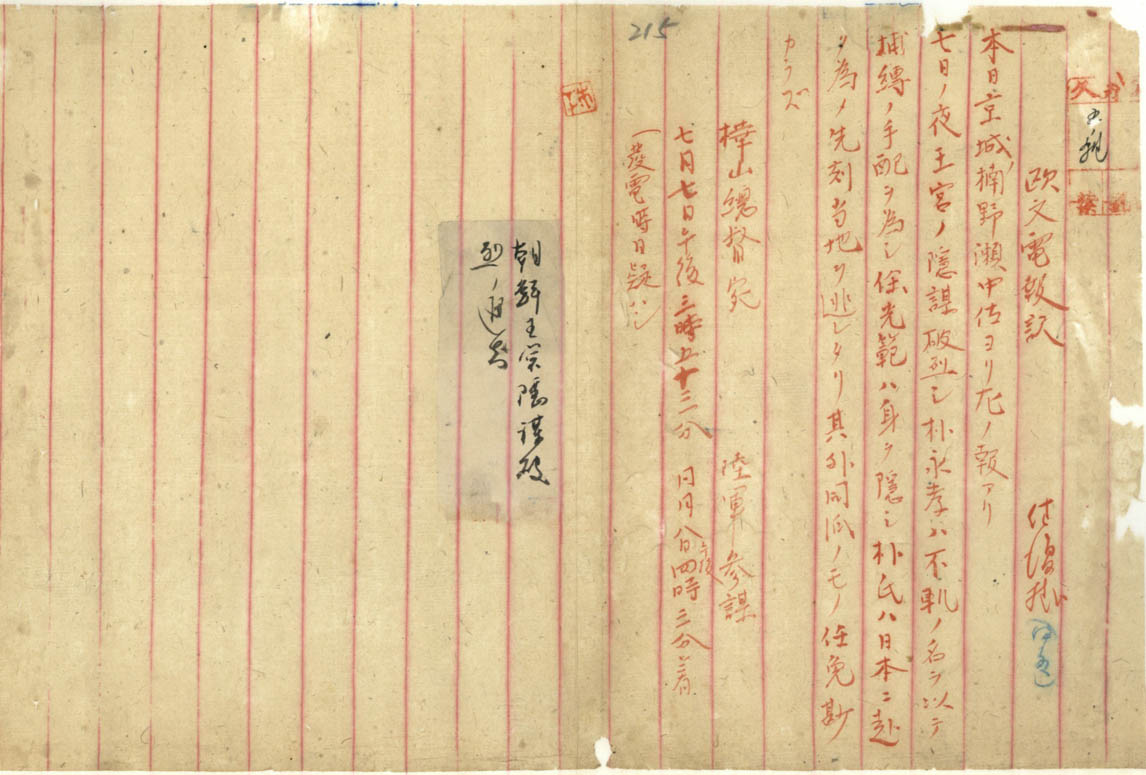 欧文電報訳
本日京城楠野瀬中佐ヨリ左ノ報アリ
七日ノ夜王宮ノ隠謀破烈シ朴永孝ハ不軌ノ名ヲ以テ
捕縛ノ手配ヲ為シ徐光範ハ身ヲ隠シ朴氏ハ日本ニ赴
ク為ノ先刻当地ヲ逃レタリ其外同派ノモノ任免尠
カラズ
樺山総督宛 陸軍参謀
七月七日午後三時五十三分 同月八日午後四時三分着
一發電時日疑ハシ
215
朝鮮王宮隠謀破
烈ノ通知